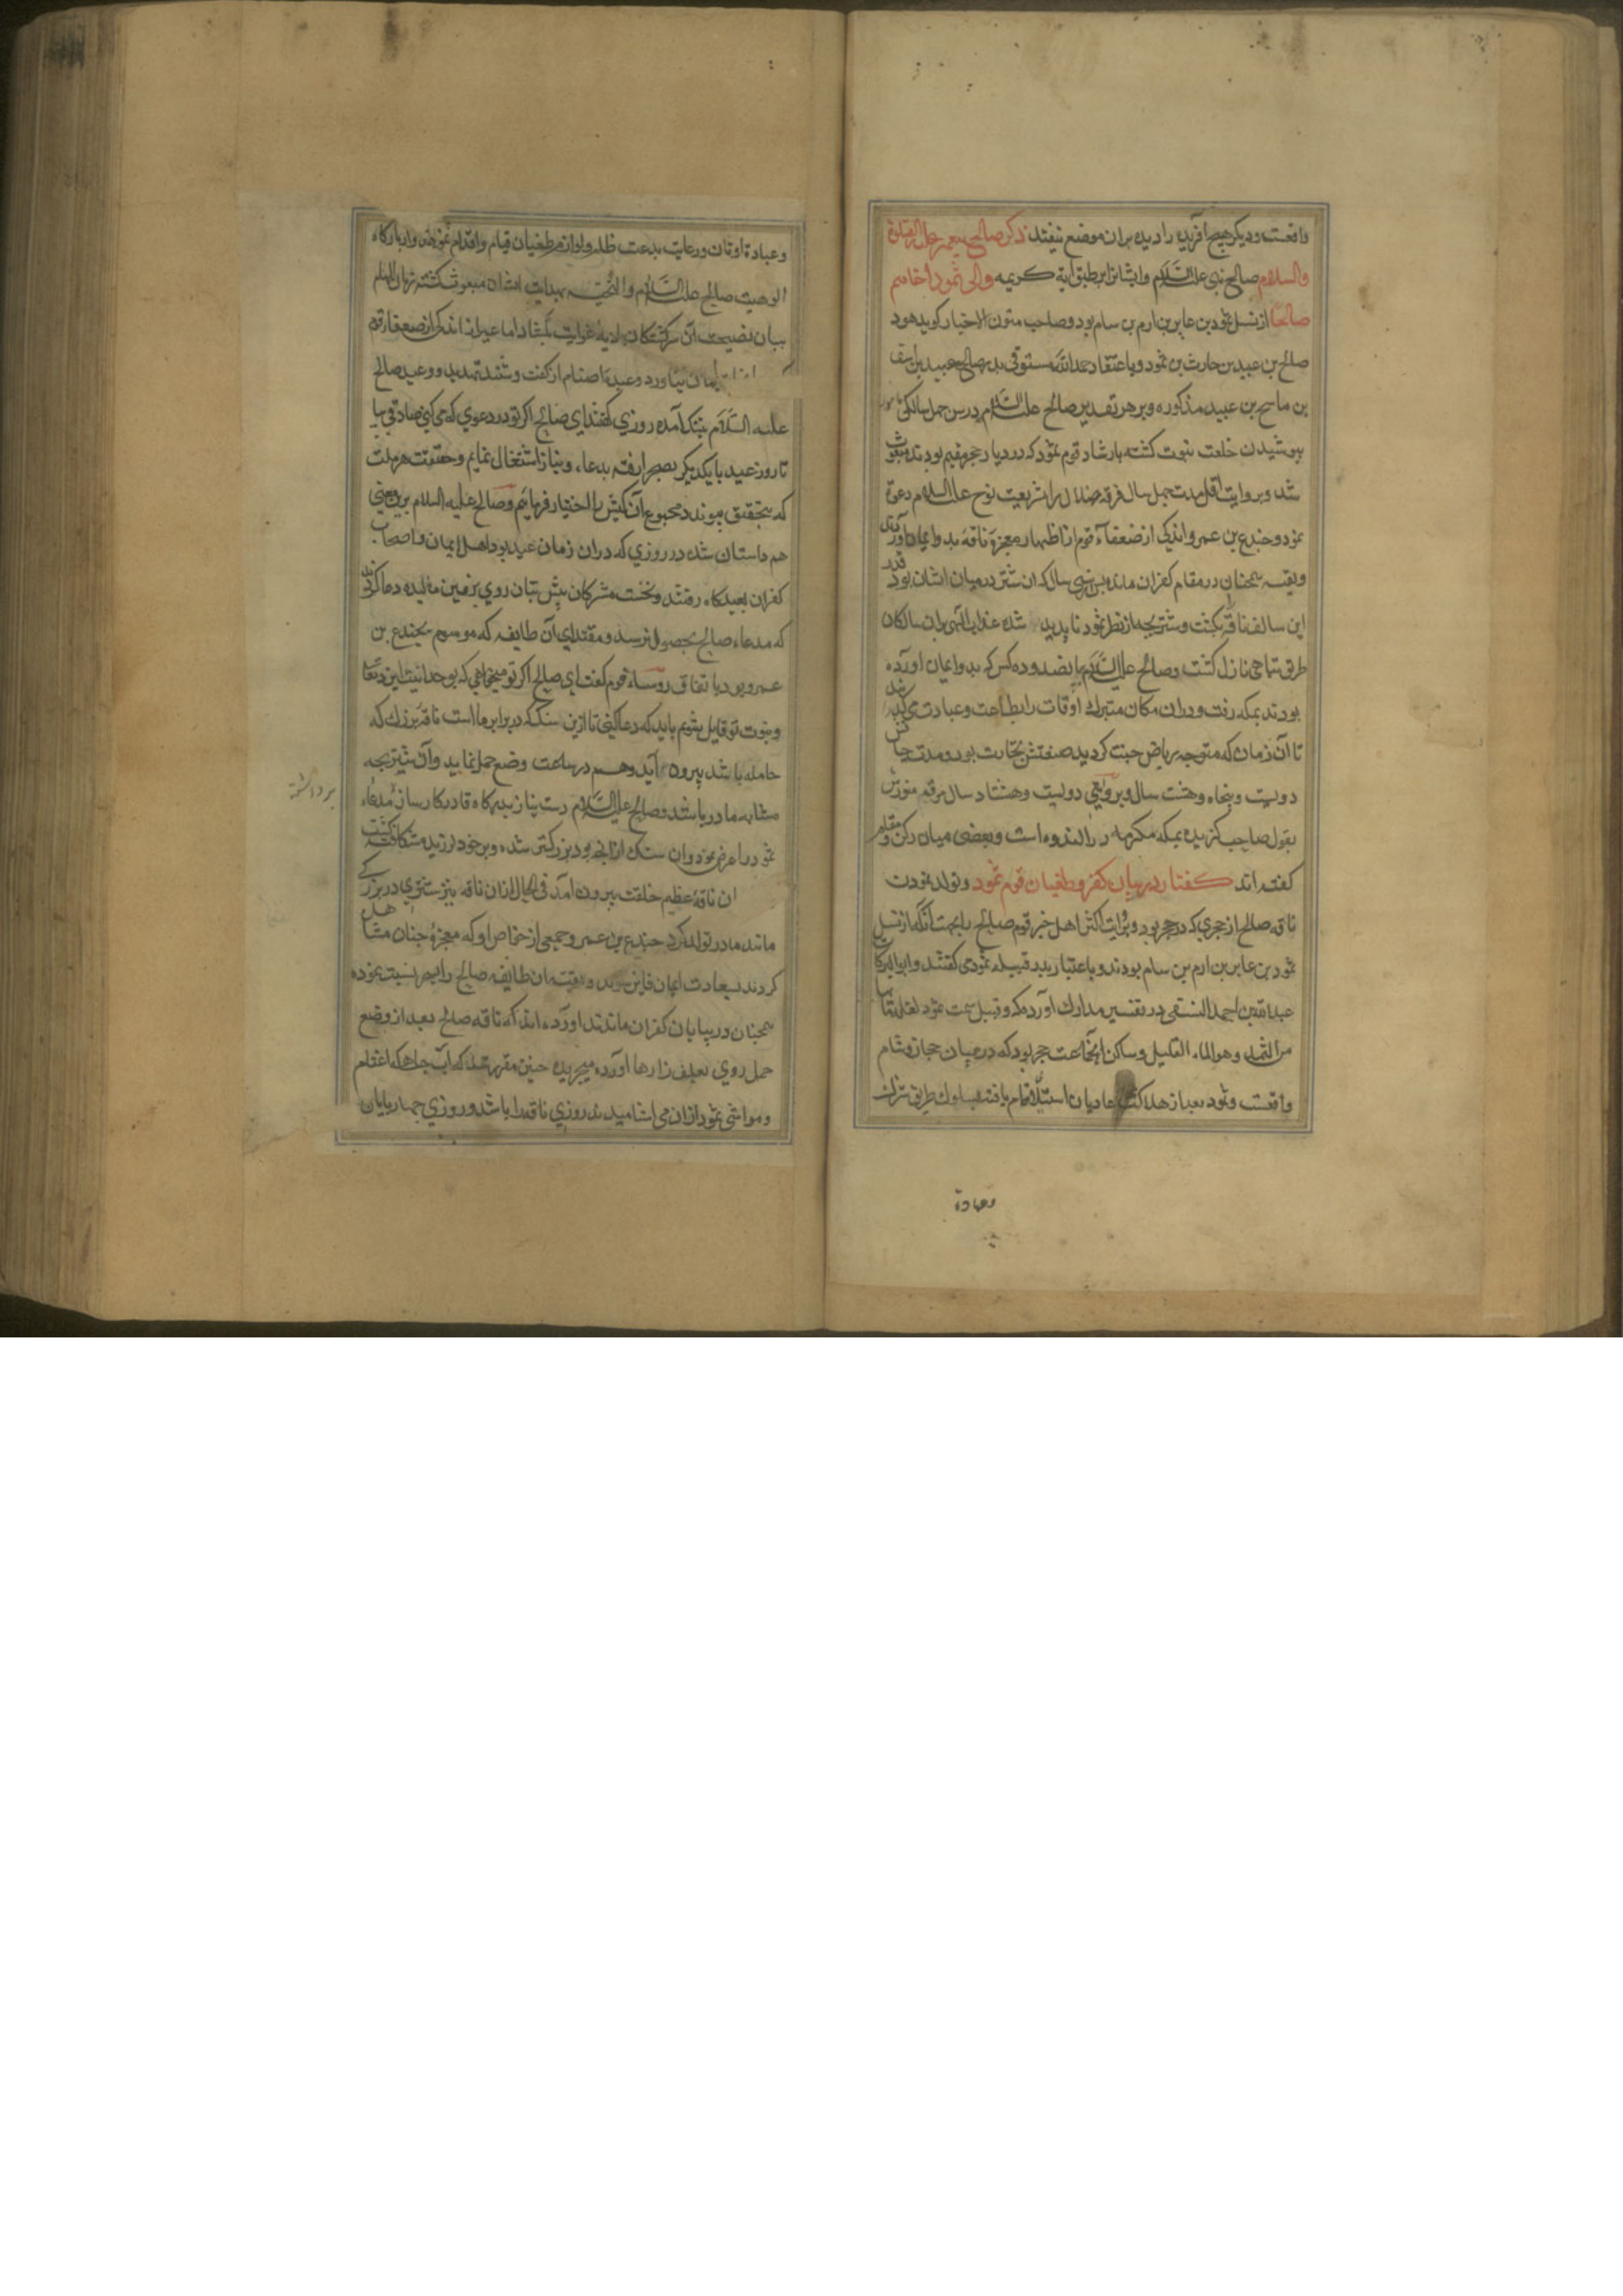 واقعست و دیکر هیچ افریده را دیده بران موضع نیفتد ذکر صالح پیغمبر علیه الصلوة
والسلام صالح نبی علیه السلام وایشانرا بر طبق آیة کریمه والی ثمود اخاهم
صالحا از نسل ثمود بن عابر بن ارم بن سام بود و صاحب متون الاخبار کوید هود
صالح بن عبید بن حارث بن ثمود و باعتقاد حمدالله مستوفی پدر صالح عبید بن اسف
بن ماسح بن عبید مذکوره و بر هر تقدیر صالح علیه السلام در سن چهل سالکی
بپوشیدن خلعت نبوت کشته بارشاد قوم ثمود که در دیار حجر مقیم بودند مبعوث
شد و بروایت اقل مدت چهل سال فرقه ضلال را بشریعت نوح علیه السلام دعوة
نمود و جندع بن عمرو و اندکی از ضعفاء قوم از اظهار معجزة ناقه بدو ایمان آوردند
و بقیه همچنان در مقام کفران مانده پس از سی سال که ان شتر در میان ایشان بود قدر
این سالف ناقه بکشت و شتربچه از نظر ثمود ناپدید شده عذاب الهی بران سالکان
طریق تباهی نازل کشت و صالح علیه السلام با پانصد و ده کس که بدو ایمان اورده
بودند بمکه رفت و دران مکان متبرک اوقات را بطاعت و عبادت می کذرانید
تا آن زمان که متوجه ریاض جنت کردید صنعتش تجارت بود و مدت حیاتش
دویست و پنجاه و هشت سال و بروایتی دویست و هشتاد سال مرقد منورش
بقول صاحب کزیده بمکه مکرمه در دارالندوه است و بعضی میان رکن و مقام
کفته اند کفتار در بیان کفر و طغیان قوم ثمود و تولد نمودن
ناقه صالح از حجری که در حجر بود و بروایت اکثر اهل خبر قوم صالح را بجهت آنکه از نسل
ثمود بن عابر بن ارم بن سام بودند و باعتبار پدر قبیله ثمودی کفتند و ابوالبرکات
عبدالله بن احمد النسفی در تفسیر مدارک آورده که و قیل سمت ثمود لقلة مائها
من الثمد وهو الماء القلیل و ساکن انجماعت حجر بود که در میان حجاز و شام
واقعست و ثمود بعد از هلاکت عادیان استیلا تمام یافته بسلوک طریق شرک
وعبادة
وعبادة اوثان و رعایت بدعت ظلم و لوازم طغیان قیام و اقدام نمودند و از بارکاه
الوهیت صالح علیه السلام والتحیه بهدایت ایشان مبعوث کشته زبان الهام
بیان نصیحت آن سرکشتکان بادیه غوایت بکشاد اما غیر از اندکی از ضعفا قوم
ایمان نیاورد و عبدة اصنام از کفت و شنید تهدید و وعید صالح
علیه السلام بتنک آمده روزی کفتند ای صالح اکر تو در دعوی که می کنی صادقی بیا
تا روز عید با یکدیکر بصحرا رفته بدعاء و نیاز اشتغال نمایم و حقیقت هر ملت
که بتحقیق پیوندد مجموع آن کیش را اختیار فرمایم و صالح علیه السلام برین معنی
هم داستان شده در روزی که دران زمان عید بود اهل ایمان و اصحاب
کفران بعیدکاه رفتند و نخست مشرکان پیش بتان روی بر زمین مالیده دعا کردند
که مدعاء صالح بحصول نرسد و مقتدای آن طایفه که موسوم بجندع بن
عمرو بود باتفاق روساء قوم کفت ای صالح اکر تو میخواهی که بوحدانیت ایزد تعالی
و نبوت تو قایل بشویم باید که دعا کنی تا ازین سنک که در برابر ما است ناقه بزرک که
حامله باشد بیرون آید و هم در ساعت وضع حمل نماید و آن شتربچه
مشابه مادر باشد و صالح علیه السلام دست نیاز بدرکاه قادر کارساز مدعاء
برداشته
ثمود را عرض نمود و ان سنک از انچه بود بزرکتر شده و بر خود لرزیده شکافته کشت
ان ناقهٔ عظیم خلقت بیرون آمد فی الحال ازان ناقه نیز شتری در بزرکی
مانند مادر تولد کرد جندع بن عمرو و جمعی از خواص او که معجزهٔ چنان مشاهده
کردند بسعادت ایمان فایز شدند و بقیه ان طایفه صالح را بسحر نسبت نموده
همچنان در بیابان کفران ماندند اورده اند که ناقه صالح بعد از وضع
حمل روی بعلف زارها آورده میچریده چنین مقرر شد که آب چاهی که اغنام
و مواشی ثمود ازان می اشامیدند روزی ناقه را باشد و روزی چهارپایان